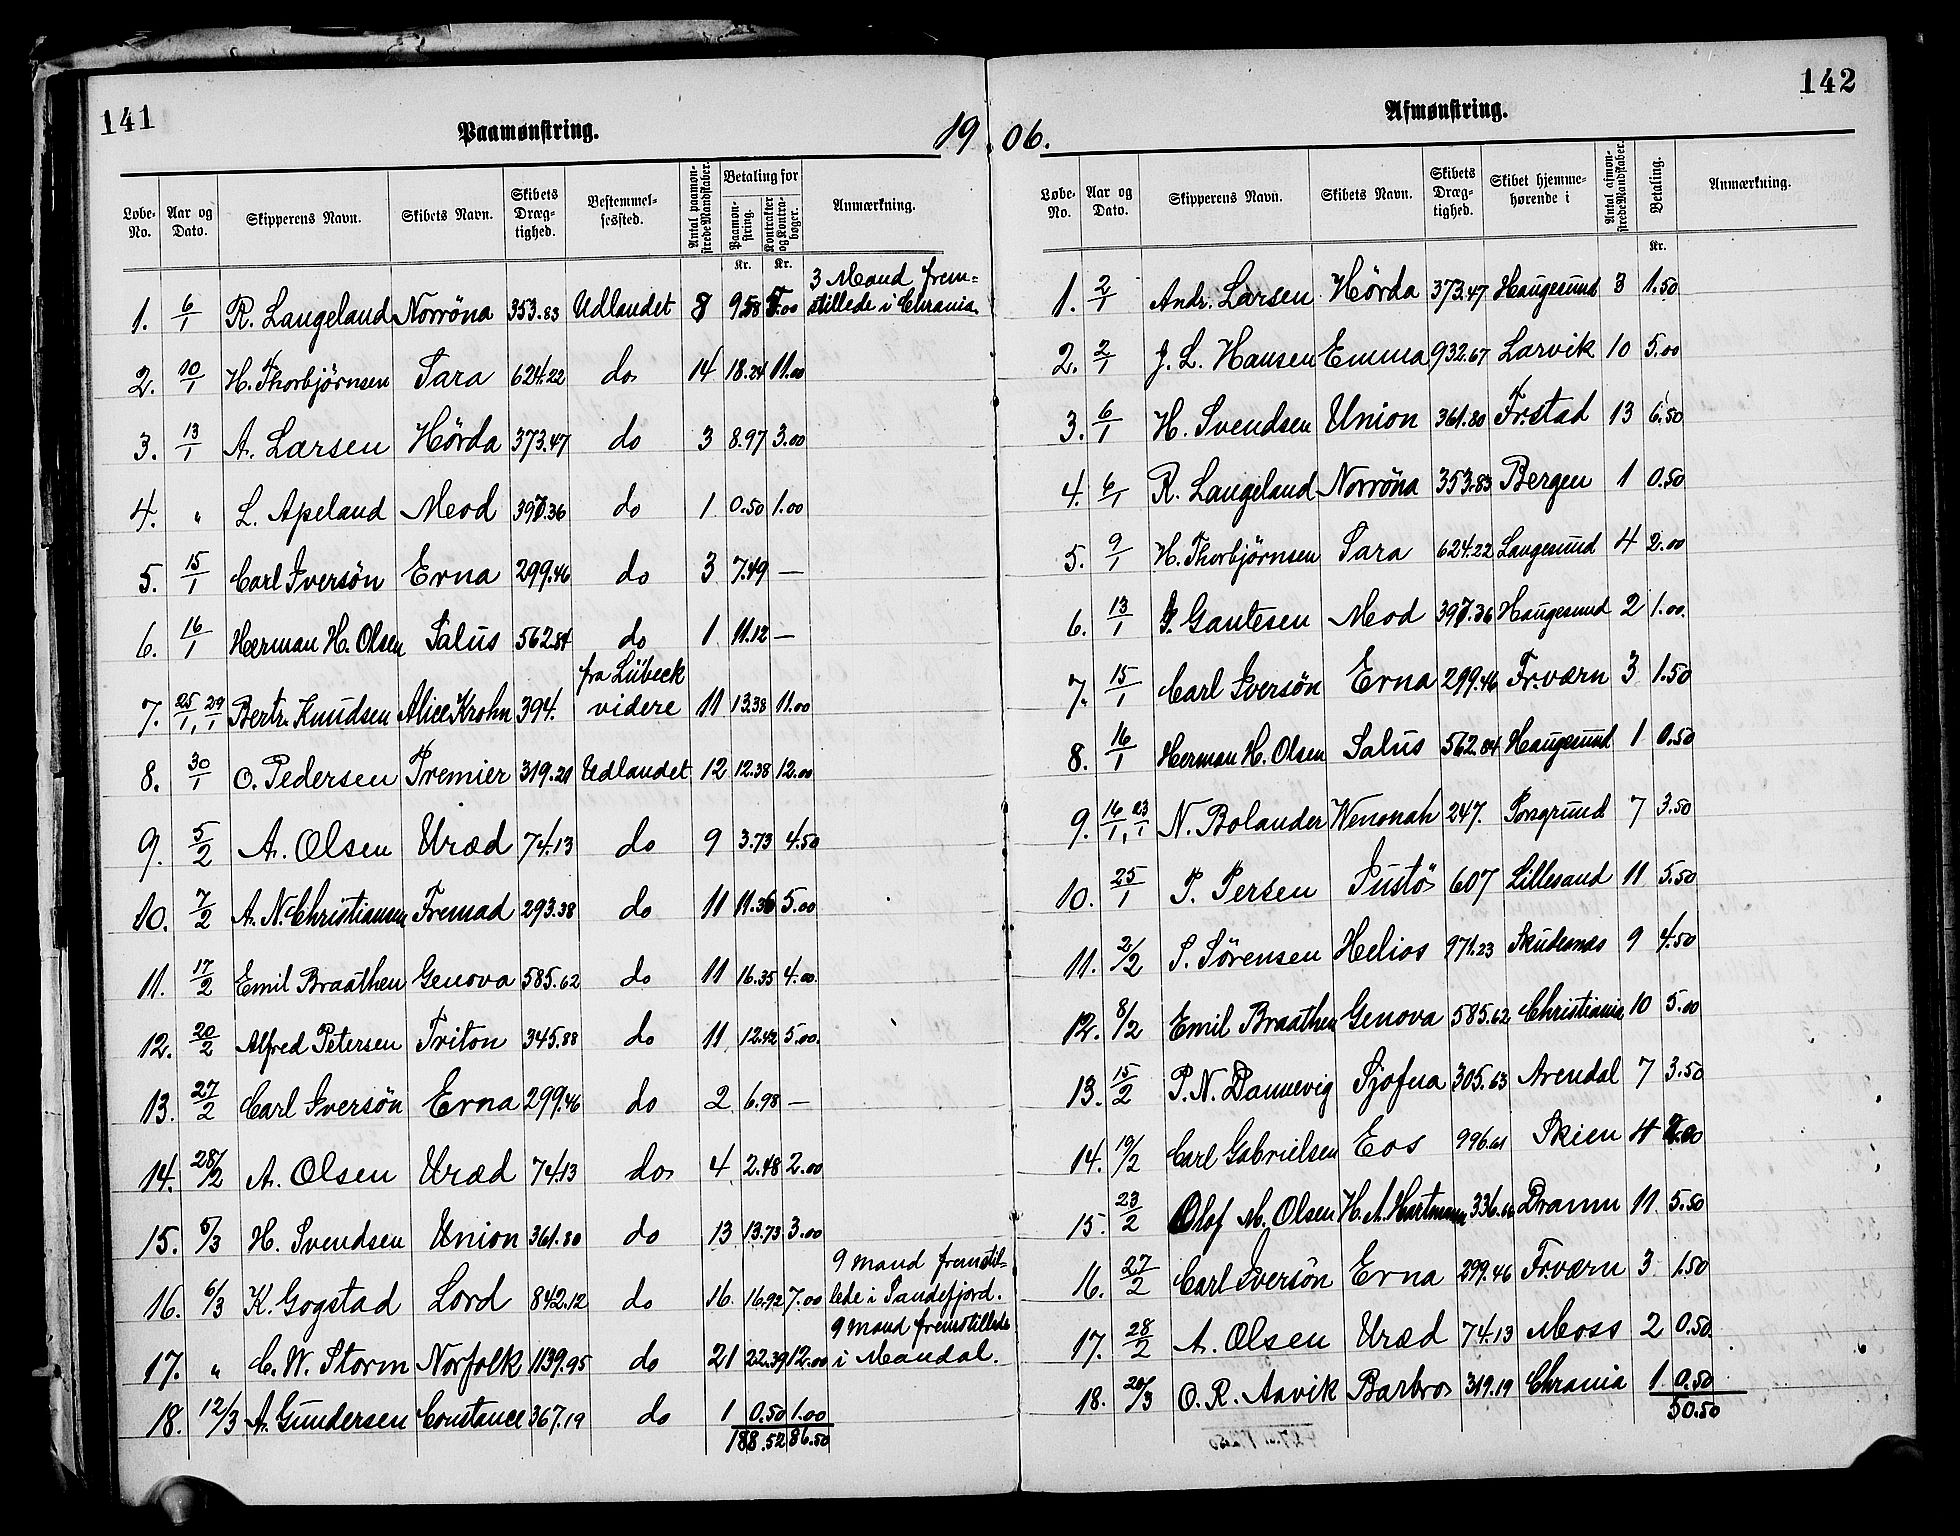 141
Paamønstring.
19
Løbe-No. Aar og Dato. Skipperens Navn. Skibets Navn. Skibets Dræg-tighed. Bestemmel-sessted. Antal paamøn-strede Mandskaber. Betaling for Paamøn-string. Kr. Kontrakter og Kontra-bøger. Kr. Anmærkning.
1. 6/1 R. Langeland Norröna 353.83 Udlandet 8 9.58 5.00 3 Mand frem-
stillede i Chrania.
2. 10/1 H. Thorbjörnsen Tara 624.22 do 14 18.24 11.00
3. 13/1 A. Larsen Hörda 373.47 do 3 8.97 3.00
4. " L. Apeland Mod 397.36 do 1 0.50 1.00
5. 15/1 Carl Iversön Erna 299.46 do 3 7.49 —
6. 16/1 Herman H. Olsen Salus 562.84 do 1 11.12 —
7. 25/1, 29/1 Bertr. Knudsen Alice Krohn 394. fra Lübeck
videre 11 13.38 11.00
8. 30/1 O. Pedersen Premier 319.21 Udlandet 12 12.38 12.00
9. 5/2 A. Olsen Uræd 74.13 do 9 3.73 4.50
10. 7/2 A. N. Christiansen Fremad 293.38 do 11 11.36 5.00
11. 17/2 Emil Braathen Genova 585.62 do 11 16.35 4.00.
12. 20/2 Alfred Petersen Triton 345.88 do 11 12.42 5.00.
13. 27/2 Carl Iversön Erna 299.46 do 2 6.98 —
14. 28/2 A. Olsen Uræd 74.13 do 4 2.48 2.00
15. 5/3 H. Svendsen Union 361.80 do 13 13.73 3.00
16. 6/3 K. Gogstad Lord 842.12 do 16 16.92 7.00 9 mand fremstil-
lede i Sandefjord.
17. " C. W. Storm Norfolk 1139.95 do 21 22.39 12.00 9 mand fremstillede
i Mandal.
18. 12/3 A. Gundersen Constance 367.19 do 1 0.50 1.00
188.52 86.50
142
Afmønstring.
06.
Løbe-No. Aar og Dato. Skipperens Navn. Skibets Navn. Skibets Dræg-tighed. Skibet hjemme-hørende i Antal afmøn-strede Mandskaber. Betaling. Kr. Anmærkning.
1. 2/1 Andr. Larsen Hörda 373.47 Haugesund 3 1.50
2. 2/1 J. L. Hansen Emma 932.67 Larvik 10 5.00
3. 6/1 H. Svendsen Union 361.80 Fr.stad 13 6.50
4. 6/1 R. Langeland Norröna 353.83 Bergen 1 0.50
5. 9/1 H. Thorbjörnsen Tara 624.22 Langesund 4 2.00
6. 13/1 G. Gautesen Mod 397.36 Haugesund 2 1.00.
7. 15/1 Carl Iversön Erna 299.46 Fr.værn 3 1.50
8. 16/1 Herman H. Olsen Salus 562.84 Haugesund 1 0.50
9. 16/1, 23/1 N. Bolander Wenonah 247. Porsgrund 7 3.50
10. 25/1 P. Persen Justö 607 Lillesand 11 5.50
11. 2/2 S. Sörensen Helios 971.23 Skudesnæs 9 4.50
12. 8/2 Emil Braathen Genova 585.62 Christiania 10 5.00
13. 15/2 P. N. Dannevig Sjofna 305.63 Arendal 7 3.50
14. 19/2 Carl Gabrielsen Eos 996.61 Skien 4 2.00
15. 23/2 Olof M. Olsen H. A. Hartmann Dramm 11. 5.50
16. 27/2 Carl Iversön Erna 299.46 Fr.værn 3 1.50
17. 28/2 A. Olsen Uræd 74.13 Moss 2 0.50.
18. 20/3 O. R. Aavik Barbro 319.19 Chrania 1 0.50
50.50